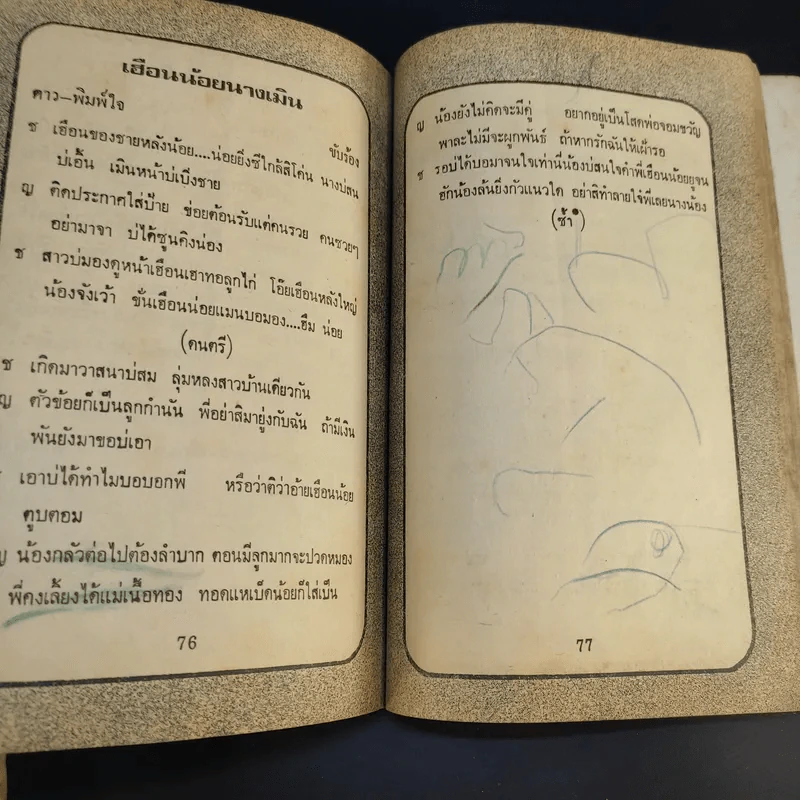 เฮือนน้อยนางเมิน
ดาว-พิมพ์ใจ
ขับร้อง
ช เฮือนของชายหลังน้อย....น่อยยิ่งซีใกล้สิโค่น นางบ่สน
บ่เอิ้น เมินหน้าบ่เบิ่งชาย
ญ ติดประกาศใส่ป้าย ข่อยต้อนรับแต่คนรวย คนซวยๆ
อย่ามาจา บ่ได้ซูนคิงน่อง
ช สาวบ่มองดูหน้าเฮือนเฮาทอลูกไก่ โอ๊ยเฮือนหลังใหญ่
น้องจังเว้า ขั่นเฮือนน่อยแมนบอมอง....ฮึม น่อย
(ดนตรี)
ช เกิดมาวาสนาบ่สม ลุ่มหลงสาวบ้านเดียวกัน
ญ ตัวข้อยก็เป็นลูกกำนัน พี่อย่าสิมายู่งกับฉัน ถ้ามีเงิน
พันยังมาขอบ่เอา
ช เอาบ่ได้ทำไมบอบอกพี หรือว่าติว่าอ้ายเฮือนน้อย
ตูบตอม
ญ น้องกลัวต่อไปต้องลำบาก ตอนมีลูกมากจะปวดหมอง
พี่คงเลี้ยงได้แม่เนื้อทอง ทอดแหเบ็ดน้อยก็ใส่เป็น
76
ญ น้องยังไม่คิดจะมีคู่ อยากอยู่เป็นโสดพ่อจอมขวัญ
พาละไม่มีจะผูกพันธ์ ถ้าหากรักฉันให้เฝ้ารอ
ช รอบ่ได้บอมาจนใจเท่านี่น้องบ่สนใจคำพี่เฮือนน้อยยูจน
ฮักน้องล้นยิ่งกัวแนวใด อย่าสิทำลายใจ้พี่เลยนางน้อง
(ซ้ำ)
77